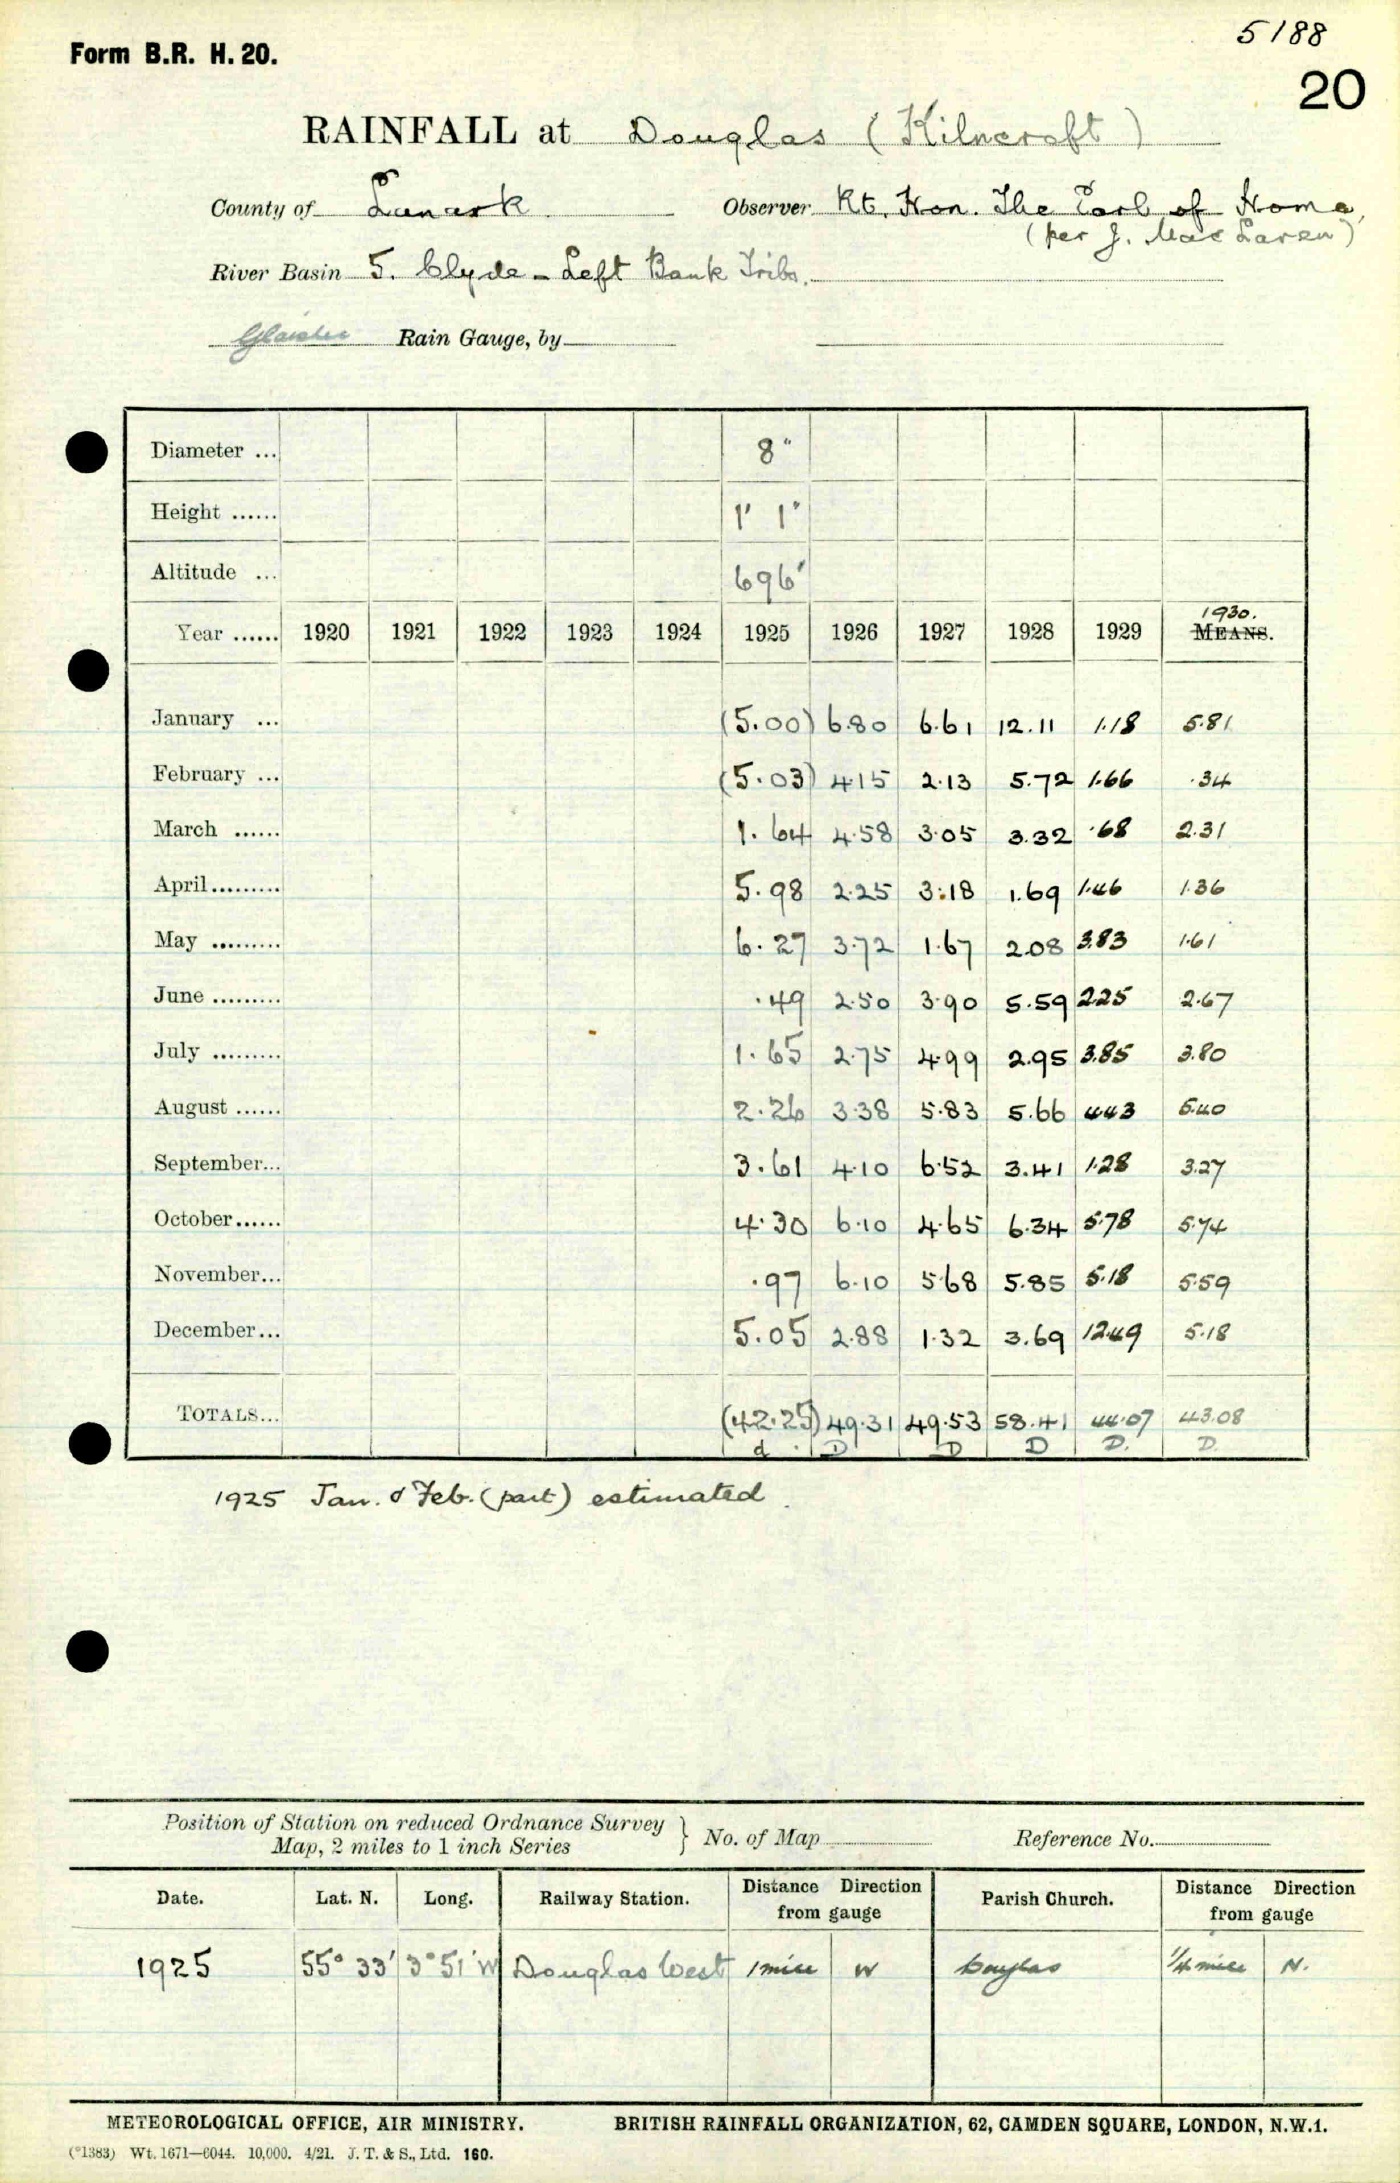 5188
Form B.R. H. 20.
20
RAINFALL at Douglas (Kilncroft)
County of Lanark Observer Rt. Hon. The Earl of Home,
(per J. MacLaren)
River Basin 5. Clyde - Left Bank Tribs.
Glaisher Rain Gauge, by
Diameter ... 8"
Height ...... 1' 1"
Altitude ... 696'
1930.
Year ...... 1920 1921 1922 1923 1924 1925 1926 1927 1928 1929 MEANS.
January ... (5.00) 6.80 6.61 12.11 1.18 5.81
February ... (5.03) 4.15 2.13 5.72 1.66 .34
March ...... 1.64 4.58 3.05 3.32 .68 2.31
April......... 5.98 2.25 3.18 1.69 1.46 1.36
May ......... 6.27 3.72 1.67 2.08 3.83 1.61
June ......... .49 2.50 3.90 5.59 2.25 2.67
July ......... 1.65 2.75 4.99 2.95 3.85 3.80
August ...... 2.26 3.38 5.83 5.66 4.43 5.40
September... 3.61 4.10 6.52 3.41 1.28 3.27
October...... 4.30 6.10 4.65 6.34 5.78 5.74
November... .97 6.10 5.68 5.85 5.18 5.59
December... 5.05 2.88 1.32 3.69 12.49 5.18
TOTALS... (42.25) 49.31 49.53 58.41 44.07 43.08
d D D D D. D.
1925 Jan. & Feb. (part) estimated.
Position of Station on reduced Ordnance Survey
Map, 2 miles to 1 inch Series } No. of Map Reference No.
Date. Lat. N. Long. Railway Station. Distance Direction from gauge Parish Church. Distance Direction from gauge
1925 55° 33' 3° 51' W Douglas West 1 mile W Douglas 1/4 mile N.
METEOROLOGICAL OFFICE, AIR MINISTRY. BRITISH RAINFALL ORGANIZATION, 62, CAMDEN SQUARE, LONDON, N.W.1.
(*1383) Wt. 1671—6044. 10,000. 4/21. J. T. & S., Ltd. 160.